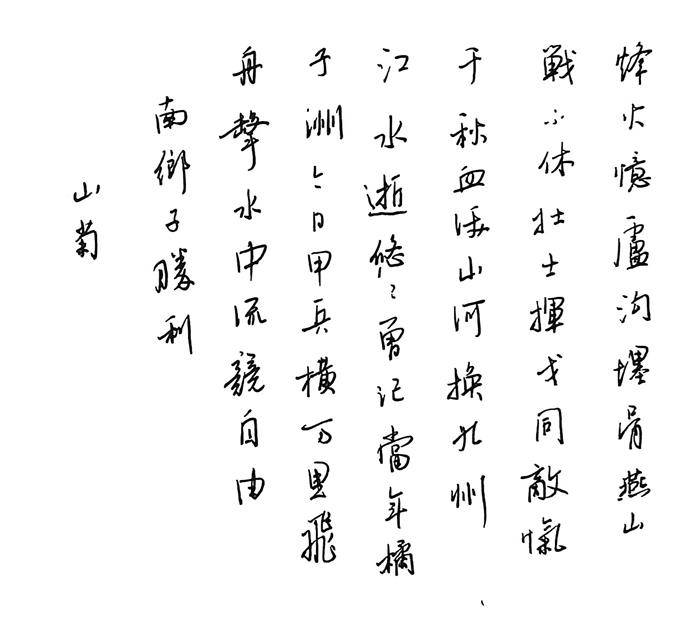 烽火憶盧沟埋骨燕山
戰不休壮士揮戈同敵愾
千秋血沃山河換九州
江水逝悠々曾记當年橘
子洲今日甲兵橫万里飛
舟擊水中流競自由
南鄉子勝利
山菊